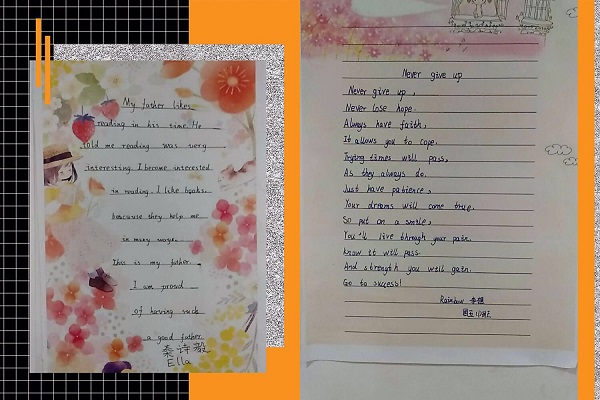 My father likes
reading in his time. He
told me reading was very
interesting. I become interested
in reading. I like books.
beacause they help me
in many ways.
This is my father.
I am proud
of having such
a good father.
秦诗毅
Ella
Never give up
Never give up,
Never lose hope.
Always have faith,
It allows you to cope.
Trying times will pass,
As they always do.
Just have patience,
Your dreams will come true.
So put on a smile,
You'll live through your pain.
Know it will pass
And strength you will gain.
Go to success!
Rainbow